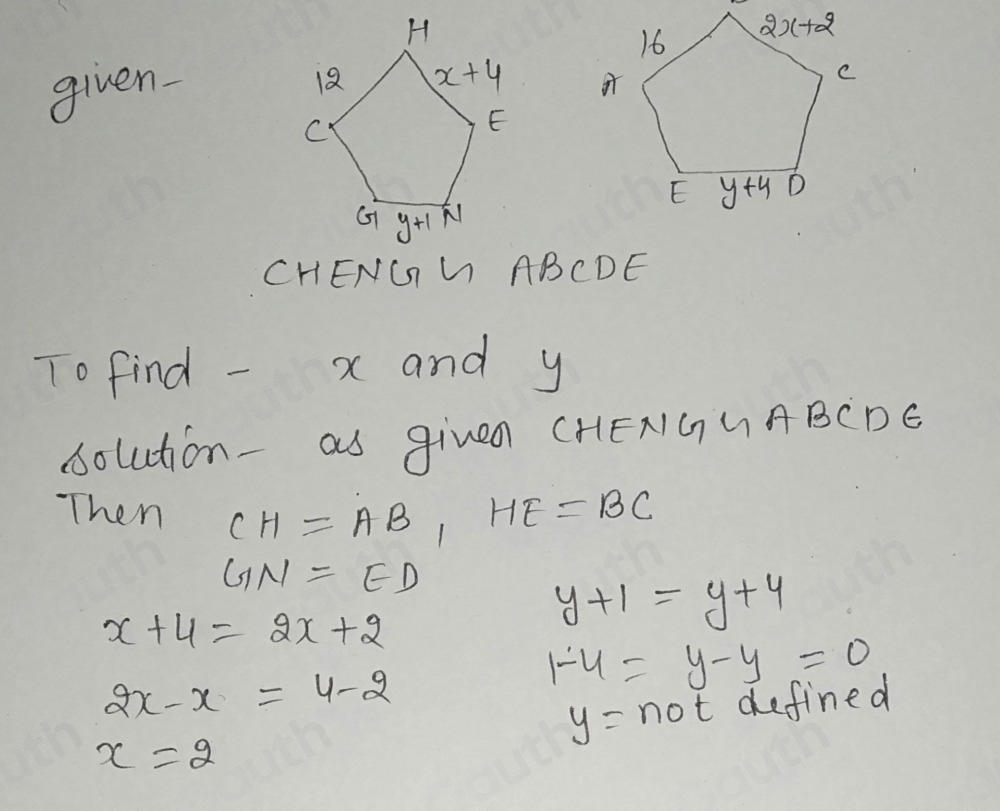 given-
H
12
x+4
C
E
G y+1 N
16
2x+2
A
C
E y+4 D
CHENG ఽ ABCDE
To find - x and y
solution- as given CHENG ఽ ABCDE
Then CH = AB, HE = BC
GN = ED
x+4 = 2x+2
2x-x = 4-2
x = 2
y+1 = y+4
1-4 = y-y = 0
y = not defined